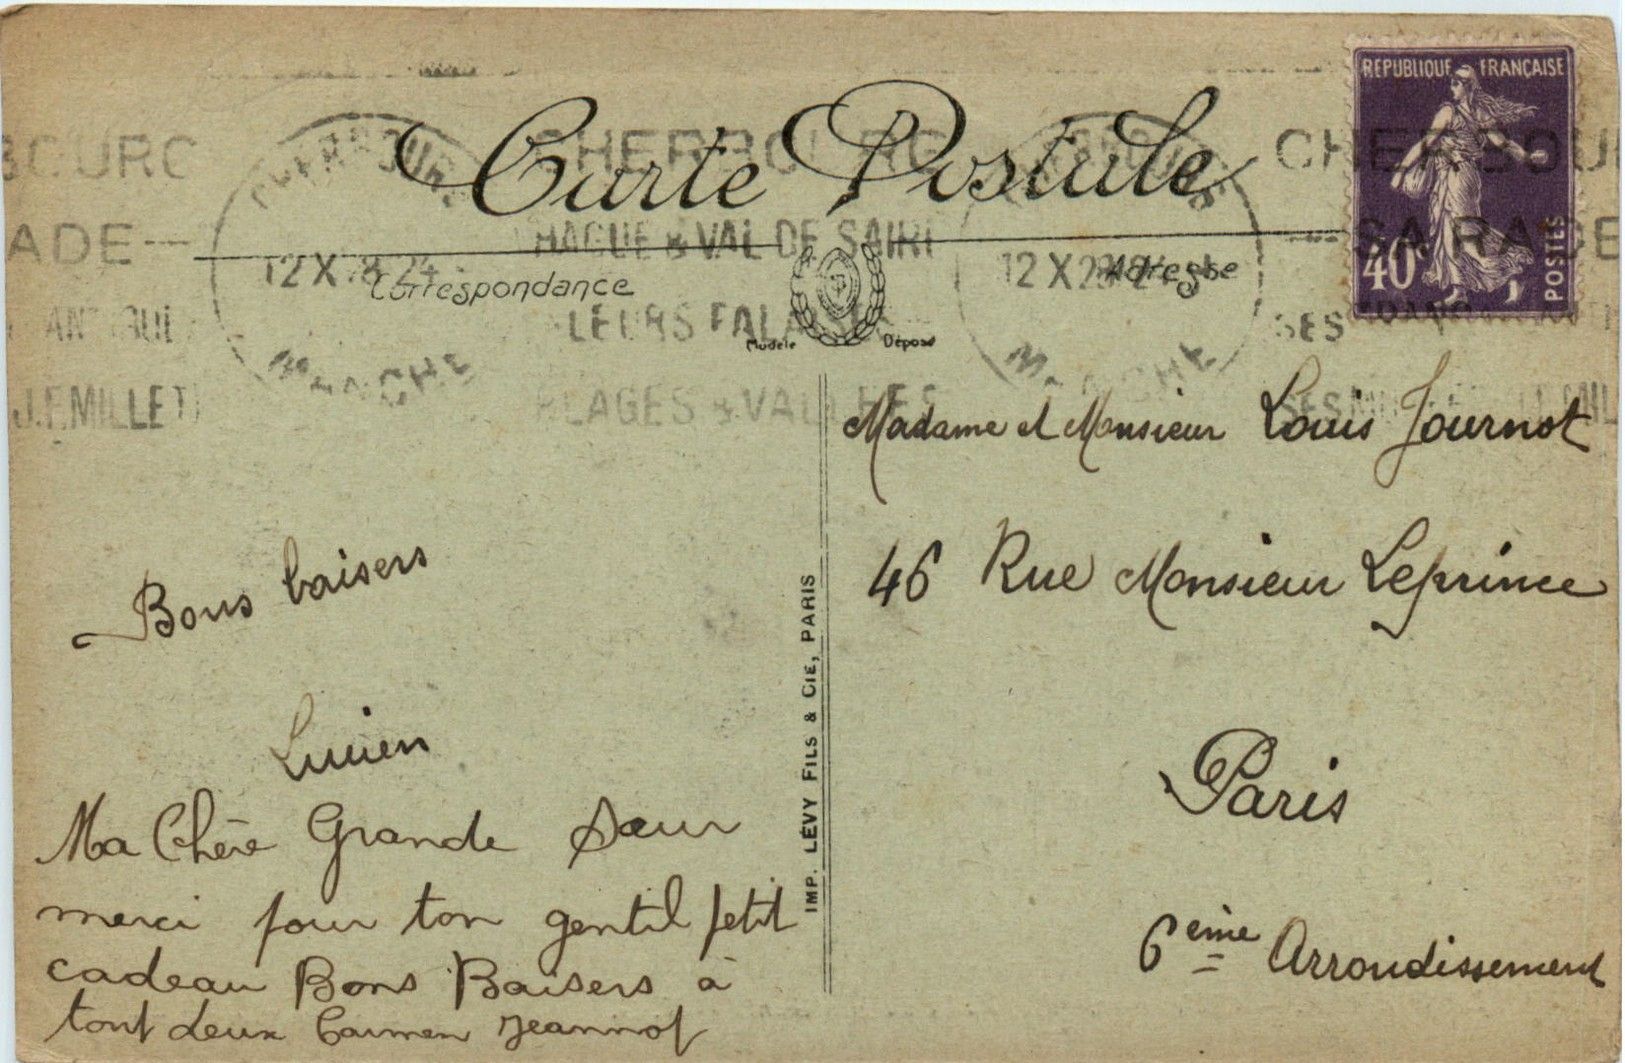 Carte Postale
RÉPUBLIQUE FRANÇAISE
40
POSTES
CHERBOURG
SA RADE
CHERBOURG
HAGUE & VAL DE SAIRE
LEURS FALAISES
PLAGES & VALLÉES
BOURG
ADE
J.F. MILLET
CHERBOURG
12 X 28
MANCHE
CHERBOURG
12 X 28
MANCHE
Correspondance
Adresse
Modèle
Déposé
Bons baisers
Lucien
Ma Chère Grande Sœur
merci pour ton gentil petit
cadeau Bons Baisers à
tout deux Carmen Jeannot
IMP. LÉVY FILS & CIE, PARIS
Madame et Monsieur Louis Journot
46 Rue Monsieur Leprince
Paris
6ème Arrondissement